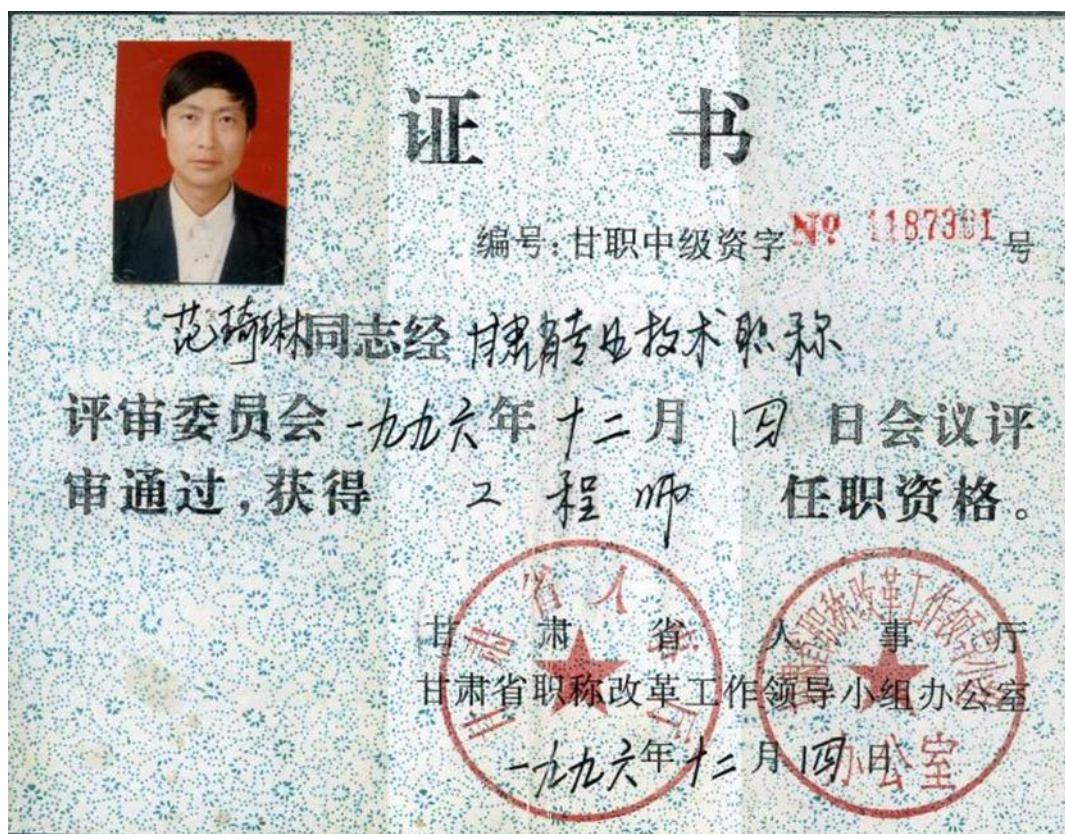 证书
编号:甘职中级资字 № 1187301 号
范琦琳同志经 甘肃省专业技术职称
评审委员会 一九九六年十二月四日会议评
审通过,获得 工程师 任职资格。
甘肃省人事厅
甘肃省职称改革工作领导小组办公室
一九九六年十二月四日
甘肃省人事厅
甘肃省职称改革工作领导小组
办公室